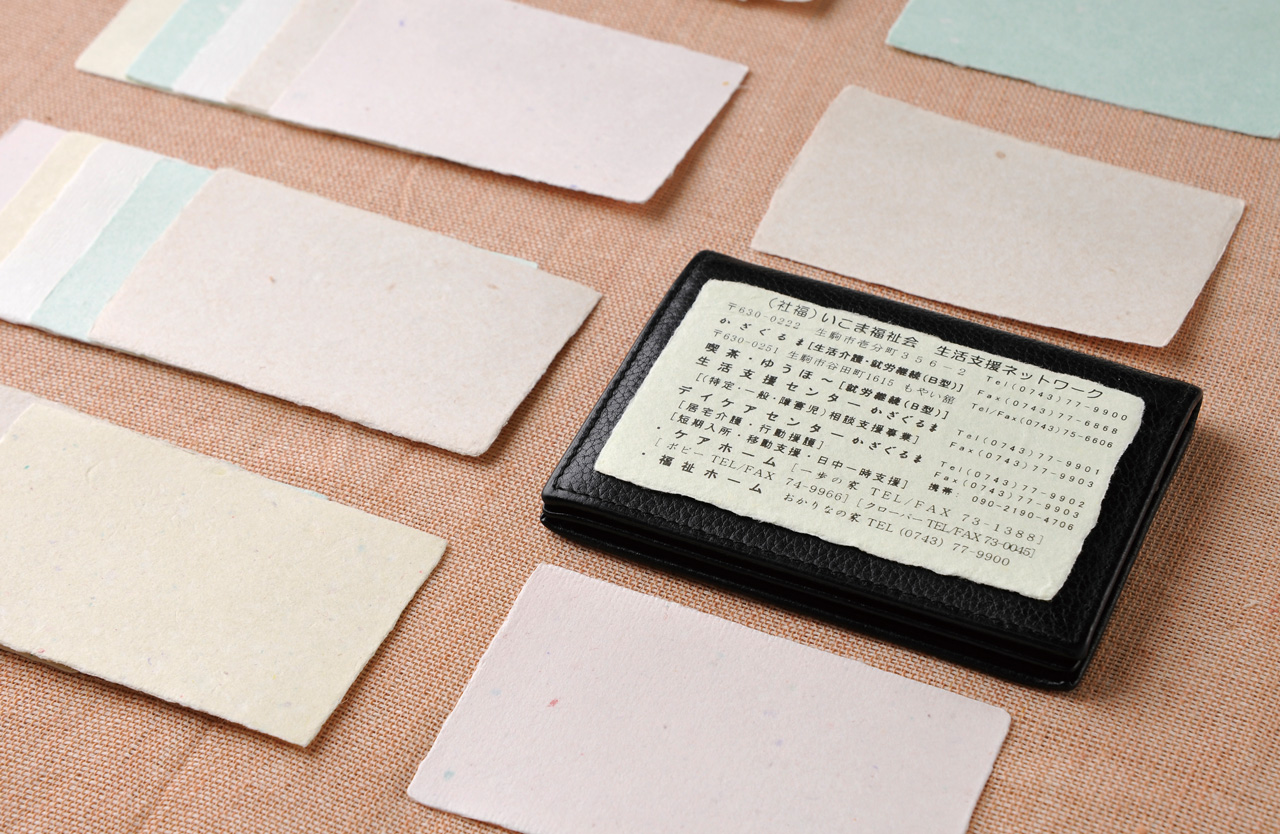 (社福)いこま福祉会 生活支援ネットワーク
〒630-0222 生駒市壱分町356-2 Tel(0743)77-9900
かざぐるま[生活介護・就労継続(B型)] Fax(0743)77-6868
〒630-0251 生駒市谷田町1615 もやい館 Tel/Fax(0743)75-6606
喫茶・ゆうほ～[就労継続(B型)]
生活支援センターかざぐるま Tel(0743)77-9901
[(特定・一般・障害児)相談支援事業] Fax(0743)77-9903
デイケアセンターかざぐるま Tel(0743)77-9902
[居宅介護・行動援護] Fax(0743)77-9903
[短期入所・移動支援・日中一時支援] 携帯: 090-2190-4706
・ケアホーム [一歩の家 TEL/FAX 73-1388]
[ポピーTEL/FAX 74-9966] [クローバーTEL/FAX 73-0045]
・福祉ホーム おかりなの家 TEL (0743) 77-9900